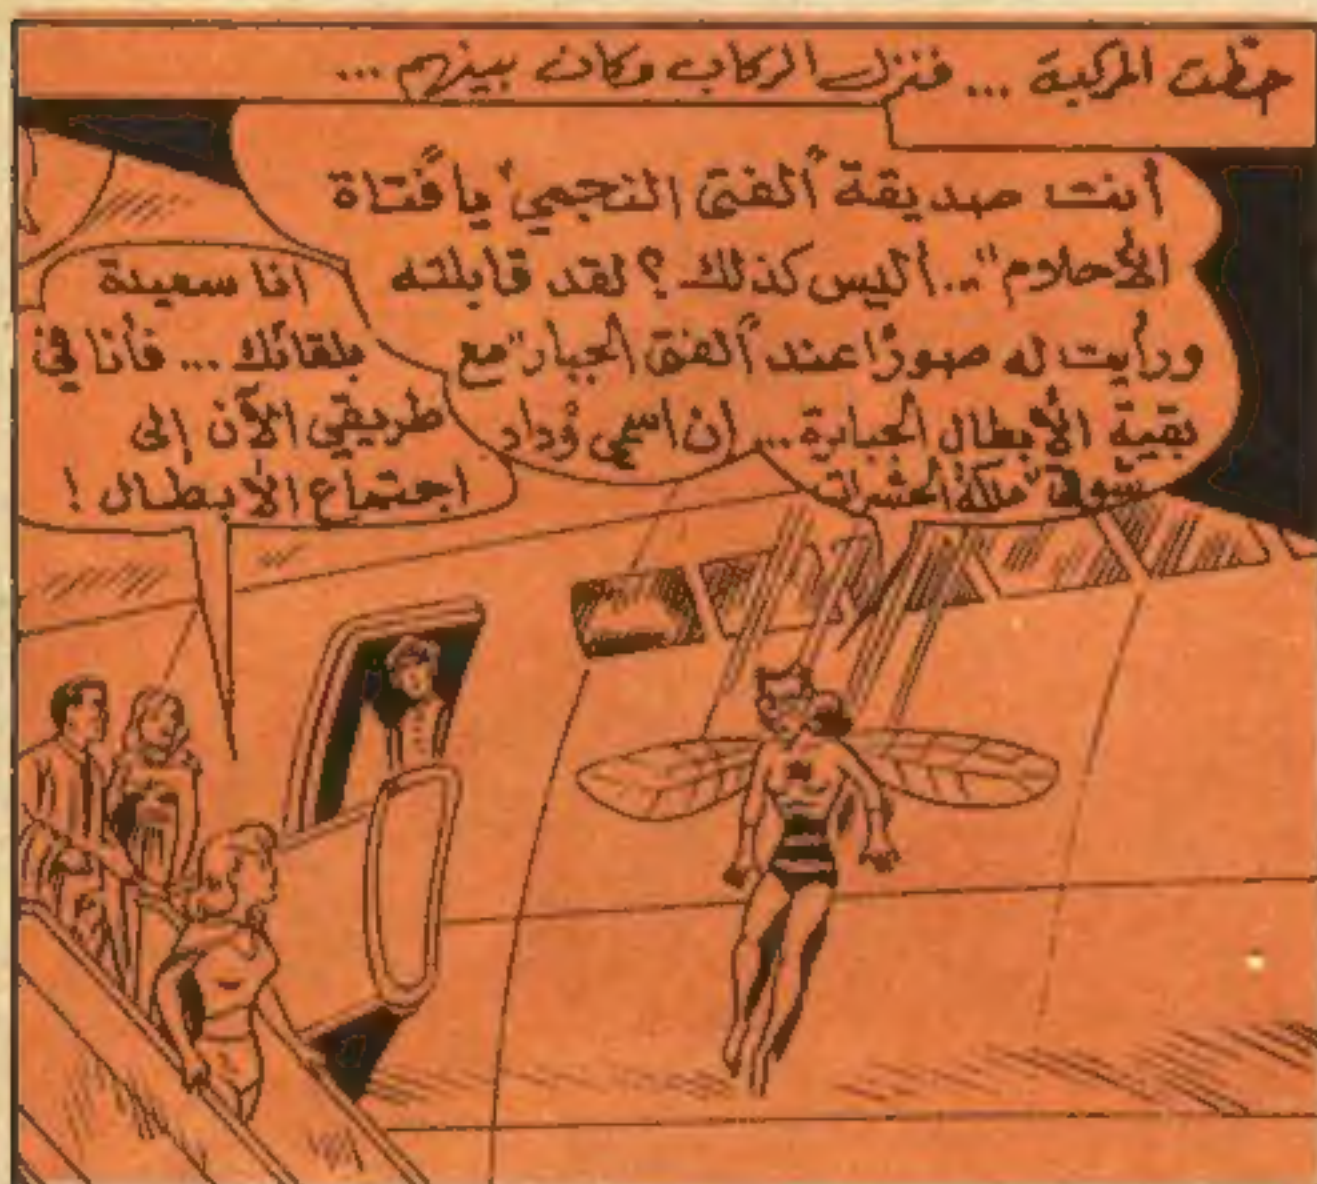 حطّت المركبة ... فنزل الركاب وكان بينهم ...
أنت صديقة "الفتى النجمي" يا "فتاة
الأحلام" ... أليس كذلك؟ لقد قابلته
ورأيت له صورًا عند "الفتى الجبار" مع
بقية الأبطال الجبابرة ... إن اسمي وداد
شوقي "ملكة الحشرات
انا سعيدة
بلقائك ... فأنا في
طريقي الآن إلى
اجتماع الأبطال !